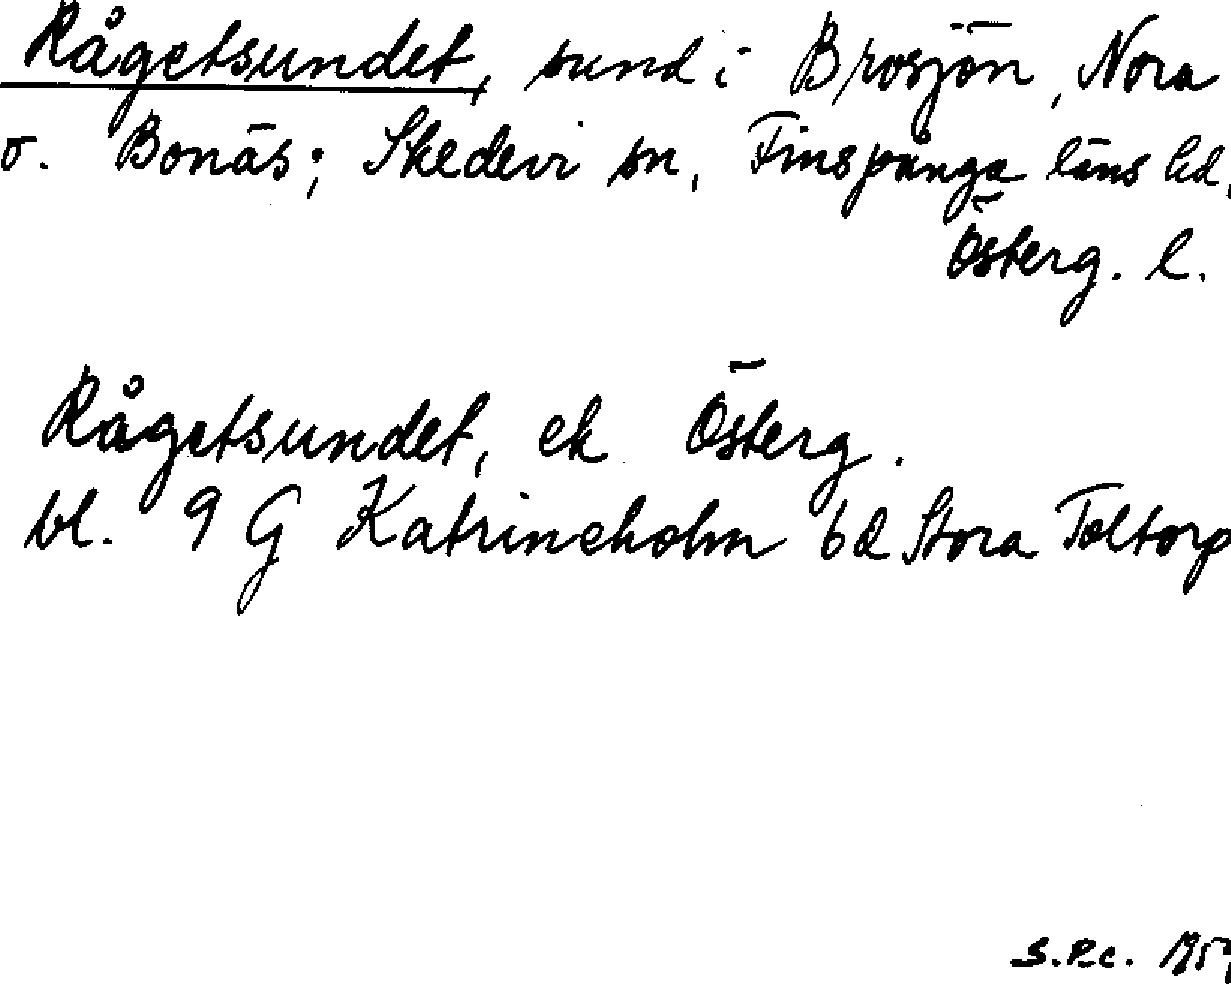 Rågetsundet, sund i Brosjön, Nora
o. Bonäs; Skedevi sn, Finspånga läns hd,
Österg. l.
Rågetsundet, ek Österg.
bl. 9 G Katrineholm 6d Stora Toltorp
S.Rc.